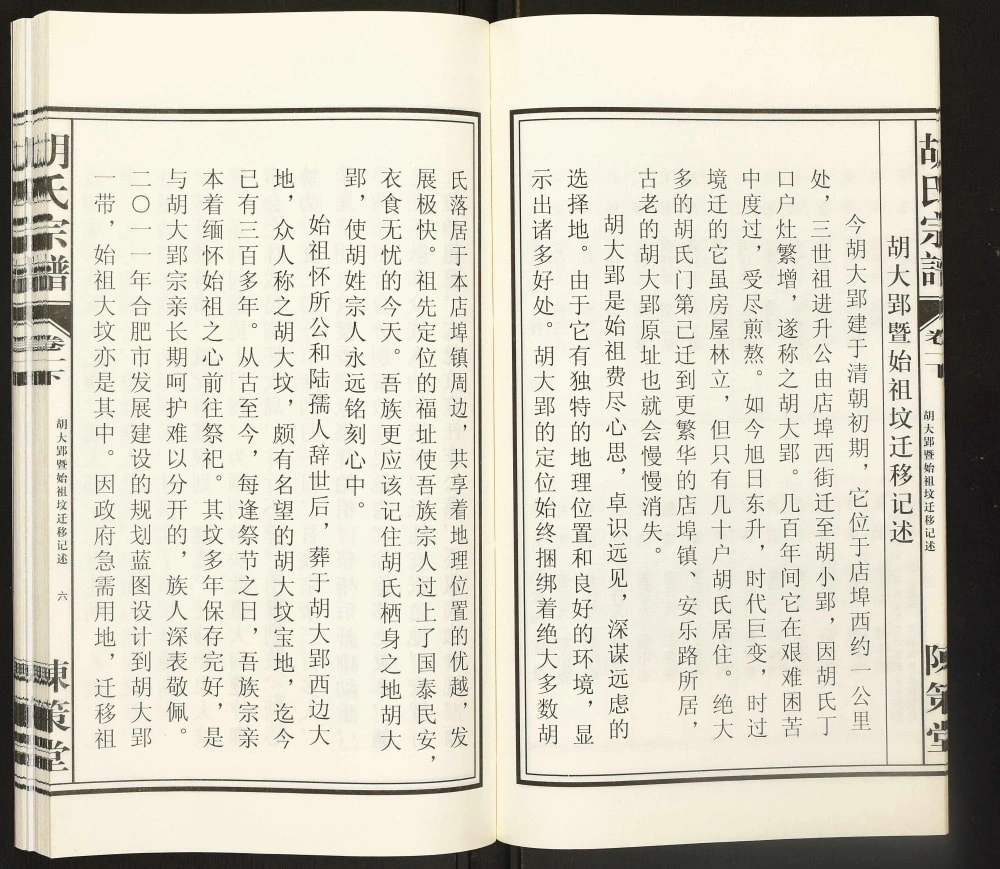 胡氏宗譜
卷一下
胡大郢暨始祖坟迁移记述
陳策堂
胡大郢暨始祖坟迁移记述
今胡大郢建于清朝初期，它位于店埠西约一公里
处，三世祖进升公由店埠西街迁至胡小郢，因胡氏丁
口户灶繁增，遂称之胡大郢。几百年间它在艰难困苦
中度过，受尽煎熬。如今旭日东升，时代巨变，时过
境迁的它虽房屋林立，但只有几十户胡氏居住。绝大
多的胡氏门第已迁到更繁华的店埠镇、安乐路所居，
古老的胡大郢原址也就会慢慢消失。
胡大郢是始祖费尽心思，卓识远见，深谋远虑的
选择地。由于它有独特的地理位置和良好的环境，显
示出诸多好处。胡大郢的定位始终捆绑着绝大多数胡
氏落居于本店埠镇周边，共享着地理位置的优越，发
展极快。祖先定位的福址使吾族宗人过上了国泰民安，
衣食无忧的今天。吾族更应该记住胡氏栖身之地胡大
郢，使胡姓宗人永远铭刻心中。
始祖怀所公和陆孺人辞世后，葬于胡大郢西边大
地，众人称之胡大坟，颇有名望的胡大坟宝地，迄今
已有三百多年。从古至今，每逢祭节之日，吾族宗亲
本着缅怀始祖之心前往祭祀。其坟多年保存完好，是
与胡大郢宗亲长期呵护难以分开的，族人深表敬佩。
二〇一一年合肥市发展建设的规划蓝图设计到胡大郢
一带，始祖大坟亦是其中。因政府急需用地，迁移祖
胡氏宗譜
卷一下
胡大郢暨始祖坟迁移记述
六
陳策堂